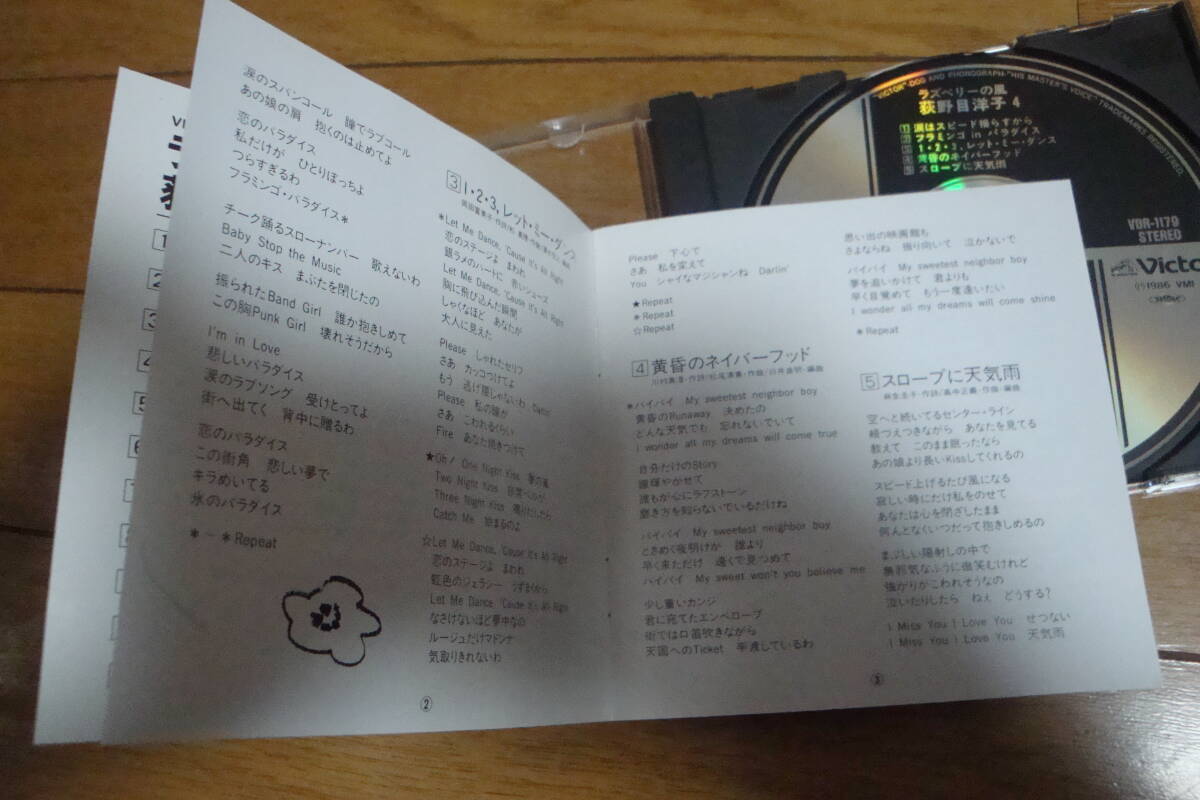 涙のスパンコール 瞳でラブコール
あの娘の肩 抱くのは止めてよ
恋のパラダイス
私だけが ひとりぼっちよ
つらすぎるわ
フラミンゴ・パラダイス＊
チーク踊るスローナンバー 歌えないわ
Baby Stop the Music
二人のキス まぶたを閉じたの
振られたBand Girl 誰か抱きしめて
この胸Punk Girl 壊れそうだから
I'm in Love
悲しいパラダイス
涙のラブソング 受けとってよ
街へ出てく 背中に贈るわ
恋のパラダイス
この街角 悲しい夢で
キラめいてる
氷のパラダイス
＊－＊Repeat
3 1・2・3, レット・ミー・ダンス
＊Let Me Dance, 'Cause It's All Right
恋のステージよ まわれ
銀ラメのハートに 赤いシューズ
Let Me Dance, 'Cause It's All Right
胸に飛び込んだ瞬間
しゃくなほど あなたが
大人に見えた
Please しゃれたセリフ
さあ カッコつけてよ
もう 逃げ腰じゃないわ Darlin'
Please 私の瞳が
さあ こわれるくらい
Fire あなた焼きつけて
★Oh! One Night Kiss 夢の嵐
Two Night Kiss 非常ベルが
Three Night Kiss 鳴りだしたら
Catch Me 始まるのよ
☆Let Me Dance, 'Cause It's All Right
恋のステージよ まわれ
虹色のジェラシー うずまくから
Let Me Dance 'Cause It's All Right
なさけないほど夢中なの
ルージュだけマドンナ
気取りきれないわ
②
Please 下心で
さあ 私を変えて
You シャイなマジシャンね Darlin'
★Repeat
＊Repeat
☆Repeat
4 黄昏のネイバーフッド
＊バイバイ My sweetest neighbor boy
黄昏のRunaway 決めたの
どんな天気でも 忘れないでいて
I wonder all my dreams will come true
自分だけのStory
瞳輝やかせて
誰もが心にラフストーン
磨き方を知らないでいるだけね
バイバイ My sweetest neighbor boy
ときめく夜明けが 誰より
早く来ただけ 遠くで見つめて
バイバイ My sweet won't you believe me
少し重いカンジ
君に宛てたエンベロープ
街では口笛吹きながら
天国へのTicket 手渡しているわ
思い出の映画館も
さよならね 振り向いて 泣かないで
バイバイ My sweetest neighbor boy
夢を追いかけて 君よりも
早く目覚めて もう一度逢いたい
I wonder all my dreams will come shine
＊Repeat
5 スロープに天気雨
麻生圭子・作詞／高中正義・作曲・編曲
空へと続いてるセンター・ライン
頬づえつきながら あなたを見てる
教えて このまま眠ったなら
あの娘より長いKissしてくれるの
スピード上げるたび風になる
寂しい時にだけ私をのせて
あなたは心を閉ざしたまま
何んとなくいつだって抱きしめるの
まぶしい陽射しの中で
無邪気なふうに微笑むけれど
強がりがこわれそうなの
泣いたりしたら ねぇ どうする?
I Miss You I Love You せつない
I Miss You I Love You 天気雨
③
"VICTOR"-DOG AND PHONOGRAPH-"HIS MASTER'S VOICE" TRADEMARKS REGISTERED.
ラズベリーの風
荻野目洋子 4
1 涙はスピード揺らすから
2 フラミンゴ in パラダイス
3 1・2・3, レット・ミー・ダンス
4 黄昏のネイバーフッド
5 スロープに天気雨
VDR-1179
STEREO
Victor
Ⓟ1986 VMI
1
2
3
4
5
6